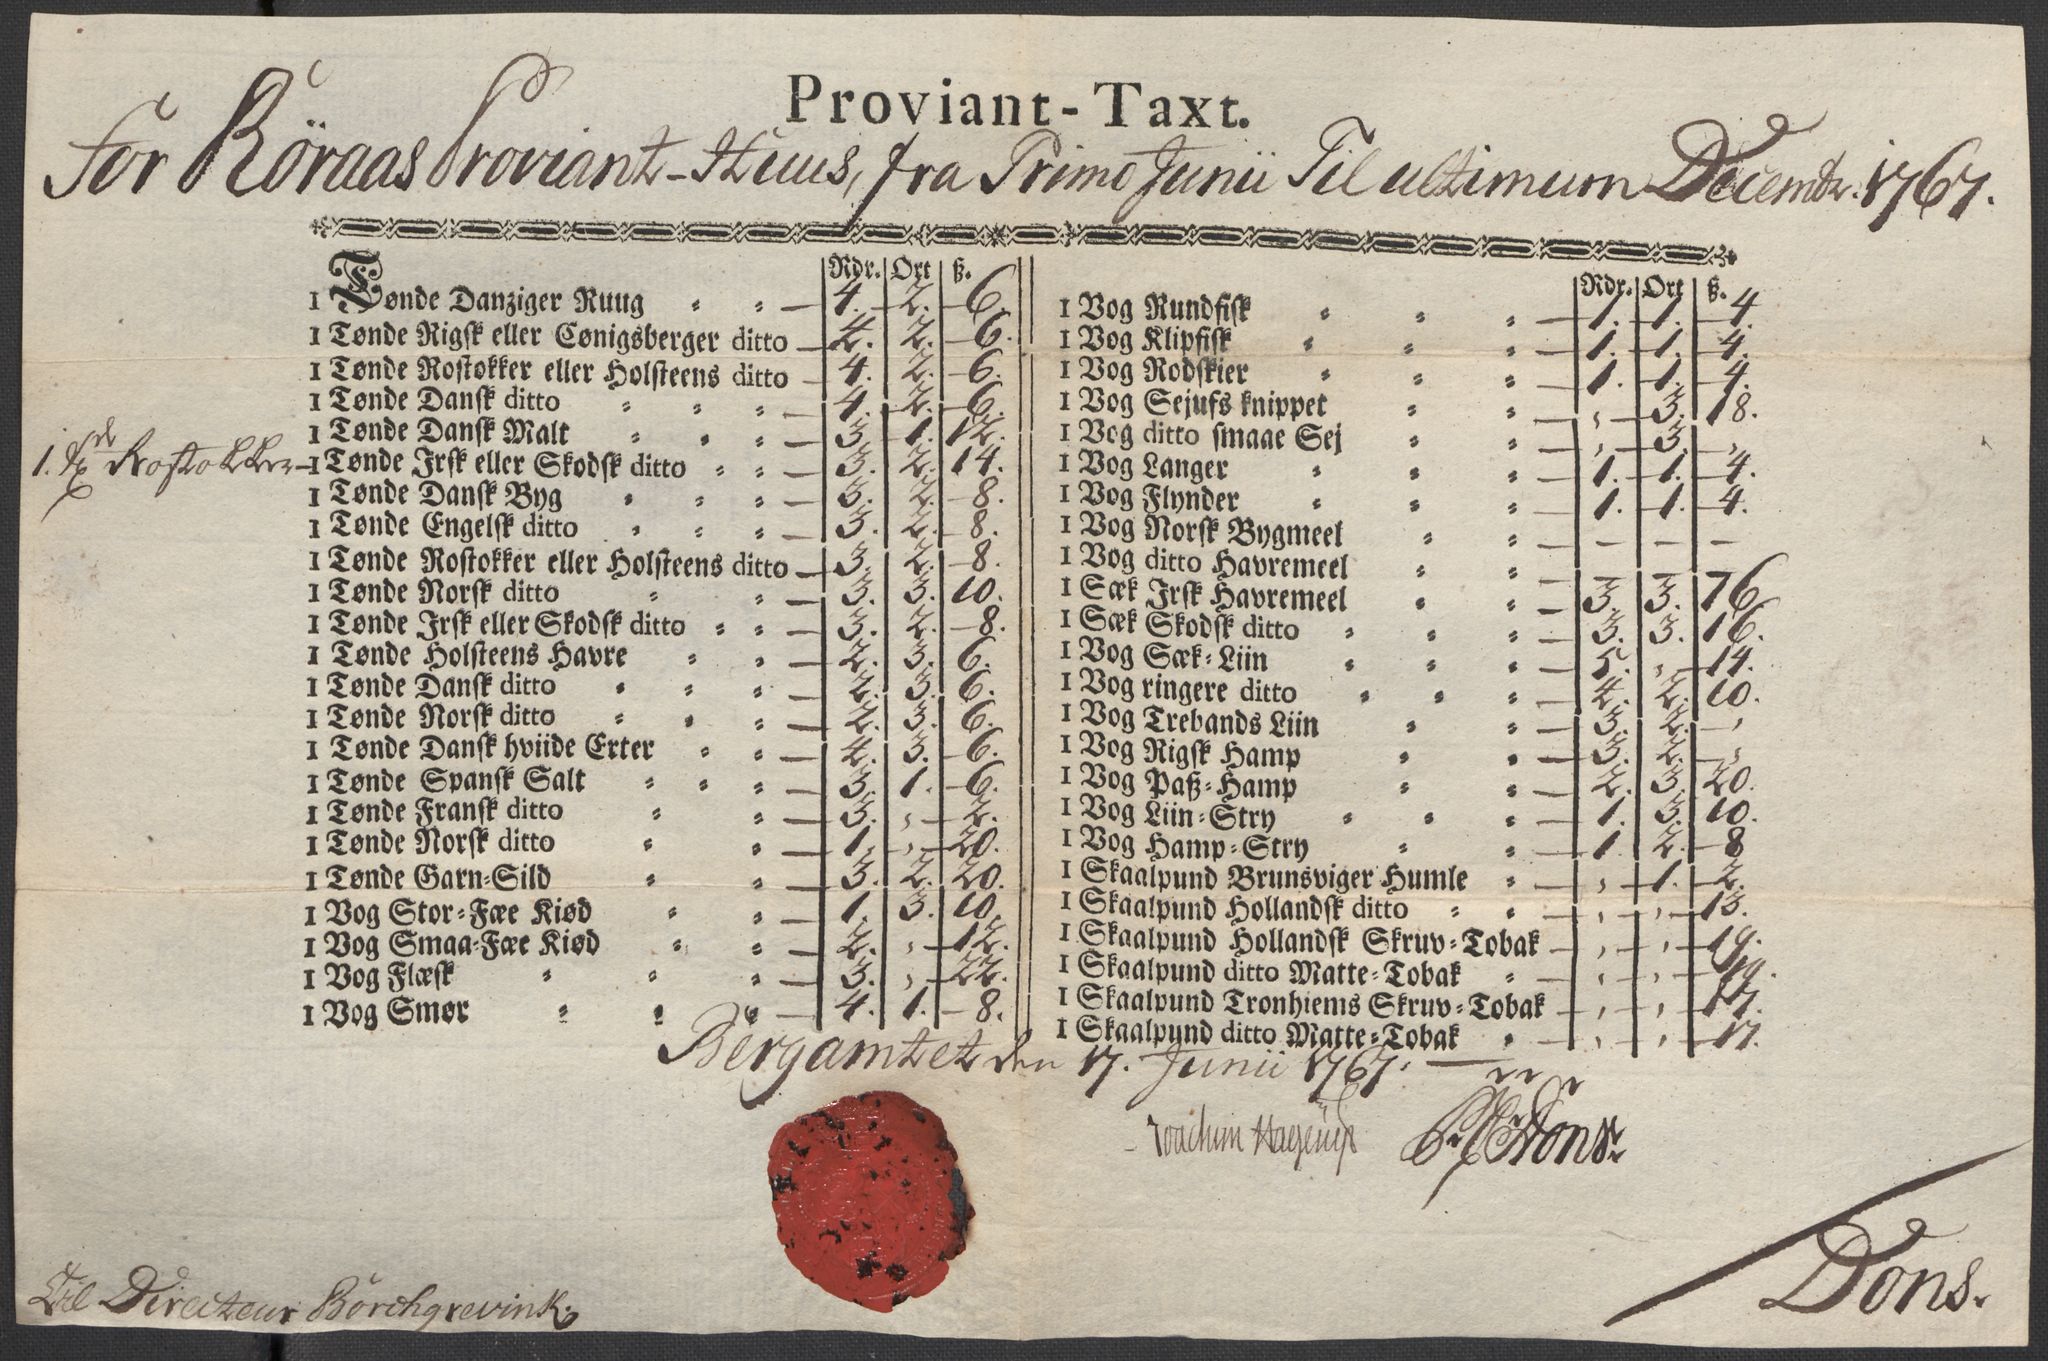 Proviant-Taxt.
For Röraas Proviant-Huus, fra Primo Junii Til ultimum Decembr. 1767.
Rdr. Ort ß.
1 Tønde Danziger Ruug 4. 2. 6
1 Tønde Rigsk eller Cønigsberger ditto 4. 2. 6.
1 Tønde Rostokker eller Holsteens ditto 4. 2. 6.
1 Tønde Dansk ditto 4. 2. 6.
1 Tønde Dansk Malt 3. 1. 12.
1. Rostokker 1 Tønde Irsk eller Skodsk ditto 3. 2. 14.
1 Tønde Dansk Byg 3. 2. 8.
1 Tønde Engelsk ditto 3. 2. 8.
1 Tønde Rostokker eller Holsteens ditto 3. 2. 8.
1 Tønde Norsk ditto 3. 3. 10.
1 Tønde Irsk eller Skodsk ditto 3. 2. 8.
1 Tønde Holsteens Havre 2. 3. 6.
1 Tønde Dansk ditto 2. 3. 6.
1 Tønde Norsk ditto 2. 3. 6.
1 Tønde Dansk hviide Erter 4. 3. 6.
1 Tønde Spansk Salt 3. 1. 6.
1 Tønde Fransk ditto 3. , 2.
1 Tønde Norsk ditto 1. , 20.
1 Tønde Garn-Sild 3. 2. 20.
1 Vog Stor-Fæe Kiød 1. 3. 10.
1 Vog Smaa-Fæe Kiød 2. , 12.
1 Vog Flæsk 3. , 22.
1 Vog Smør 4. 1. 8.
Rdr. Ort ß.
1 Vog Rundfisk 1. 1. 4
1 Vog Klipfisk 1. 1. 4.
1 Vog Rodskier 1. 1. 4.
1 Vog Sejufs knippet , 3. 18.
1 Vog ditto smaae Sej , 3. ,
1 Vog Langer 1. 1. 4.
1 Vog Flynder 1. 1. 4.
1 Vog Norsk Bygmeel — — —
1 Vog ditto Havremeel — — —
1 Sæk Irsk Havremeel 3. 3. 16
1 Sæk Skodsk ditto 3. 3. 16.
1 Vog Sæk-Liin 5. , 14.
1 Vog ringere ditto 4. 2. 10.
1 Vog Trebands Liin 3. 2. ,
1 Vog Rigsk Hamp 3. 2. ,
1 Vog Paß-Hamp 2. 3. 20.
1 Vog Liin-Stry 1. 3. 10.
1 Vog Hamp-Stry 1. 2. 8
1 Skaalpund Brunsviger Humle , 1. 2.
1 Skaalpund Hollandsk ditto , , 13.
1 Skaalpund Hollandsk Skruv-Tobak , , 19.
1 Skaalpund ditto Matte-Tobak , , 19.
1 Skaalpund Tronhiems Skruv-Tobak , , 17.
1 Skaalpund ditto Matte-Tobak , , 17.
Bergamtet den 17. Junii 1767.
Joachim Hagerup Dons.
Dons.
Til Directeur Borchgrevink.